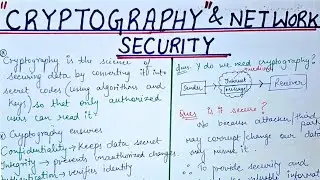 "CRYPTOGRAPHY" & NETWORK
SECURITY
Cryptography is the science of
securing data by converting it into
secret codes (using algorithms and
keys) so that only authorized
users can read it
Cryptography ensures
Confidentiality → Keeps data secret
Integrity → prevents unauthorized changes
Authentication → verifies identity
Ques. Y do we need cryptography?
Sender → Internet → Receiver
Ques is it secure?
No because attacker/third
may corrupt change our data
misuse it.
∴ To provide security and